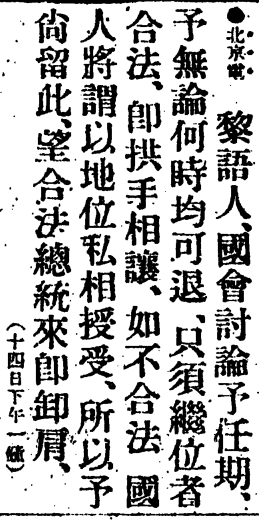 ●北京電　黎語人、國會討論予任期、
予無論何時均可退、只須繼位者
合法、卽拱手相讓、如不合法、國
人將謂以地位私相授受、所以予
尙留此、望合法總統來卽卸肩、
（十四日下午一鐘）